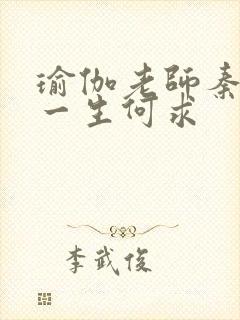 瑜伽老師秦
一生何求
李武俊